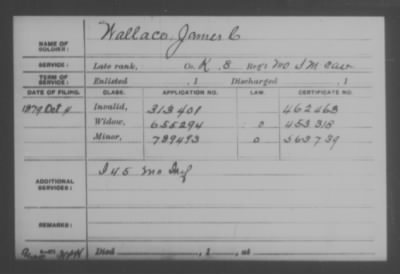 NAME OF SOLDIER: Wallace James C
SERVICE: Late rank, Co. K. 8 Reg't Mo S M Cav
TERM OF SERVICE: Enlisted , 1 Discharged , 1
DATE OF FILING. CLASS. APPLICATION NO. LAW. CERTIFICATE NO.
1879 Oct 4 Invalid, 313401 462463
Widow, 655294 453318
Minor, 789493 563739
ADDITIONAL SERVICES: 45 Mo Inf
REMARKS:
Died , 1 , at